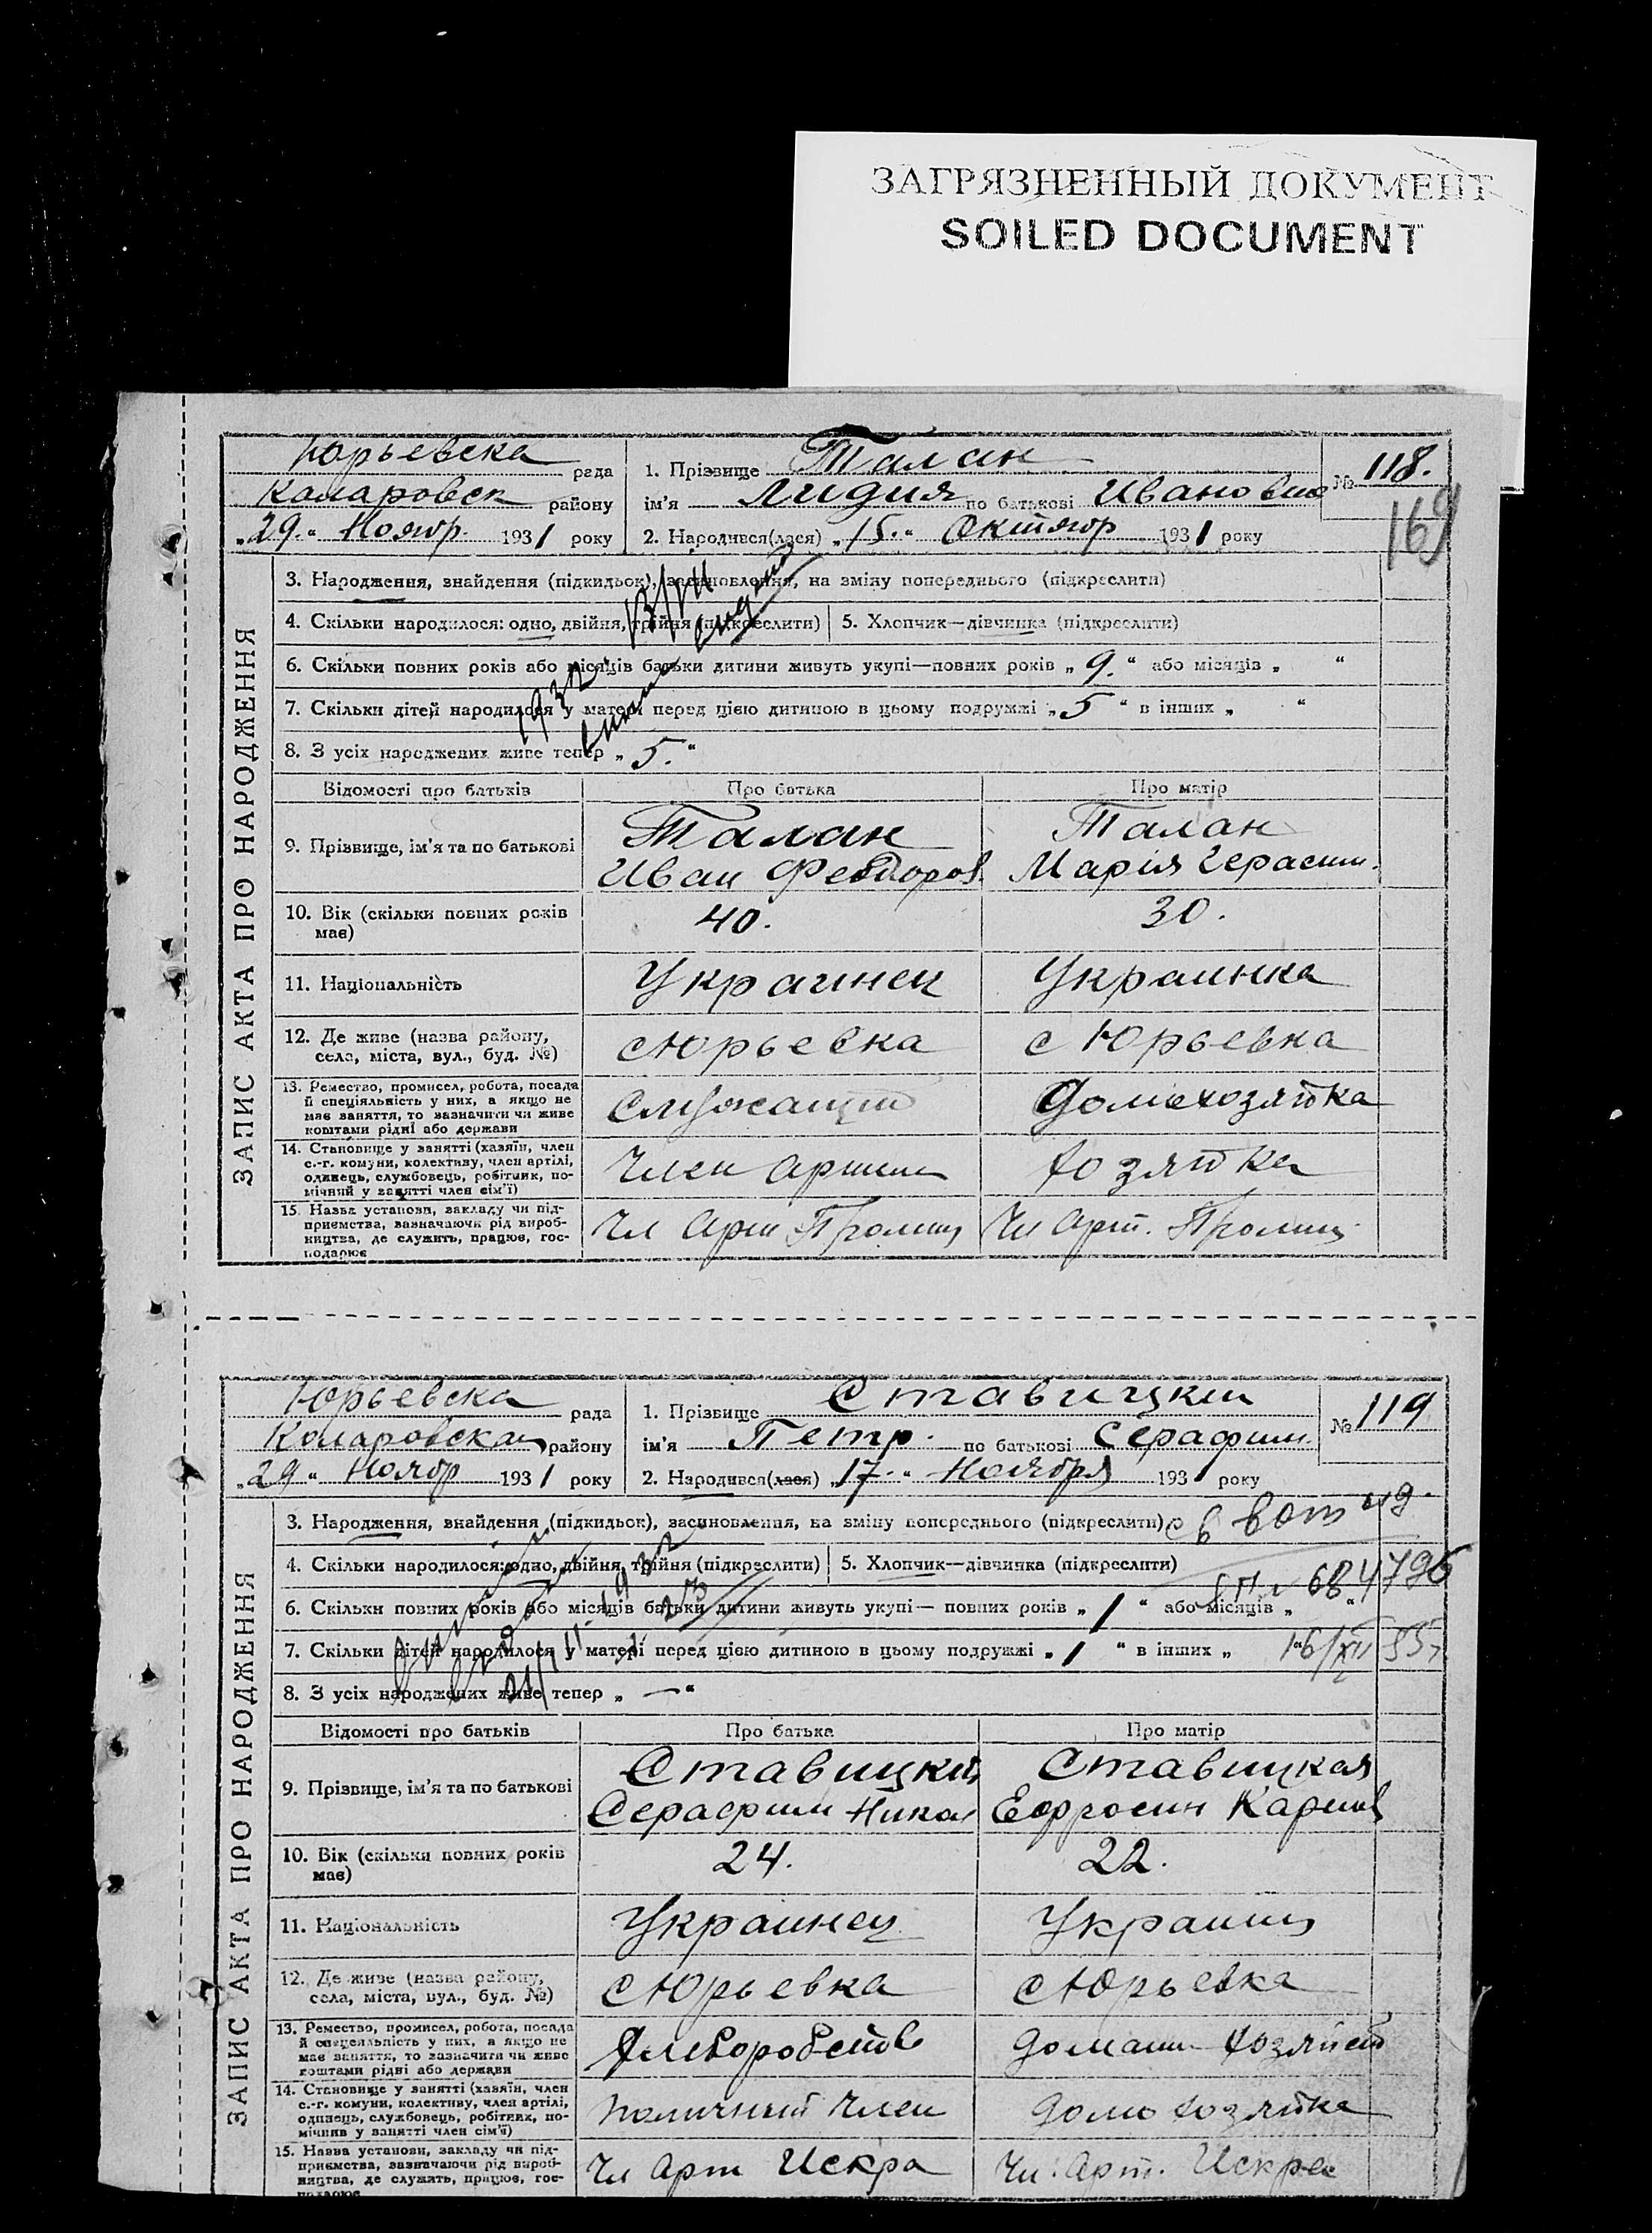 ЗАГРЯЗНЕННЫЙ ДОКУМЕНТ
SOILED DOCUMENT
Юрьевска рада
1. Прізвище Талан
№ 118.
Коларовск району
ім'я Лидия по батькові Ивановна
169
„29.“ Ноябр. 1931 року
2. Народився(лася) „15.“ Октябр 1931 року
ЗАПИС АКТА ПРО НАРОДЖЕННЯ
3. Народження, знайдення (підкидьок), засиновлення, на зміну попереднього (підкреслити)
4. Скільки народилося: одно, двійня, трійня (підкреслити)
5. Хлопчик—дівчинка (підкреслити)
6. Скільки повних років або місяців батьки дитини живуть укупі—повних років „9.“ або місяців „ “
7. Скільки дітей народилося у матері перед цією дитиною в цьому подружжі „5“ в інших „ “
8. З усіх народжених живе тепер „5.“
1932
Відомості про батьків
Про батька
Про матір
9. Прізвище, ім'я та по батькові
Талан
Иван Феодоров.
Талан
Марія Герасим.
10. Вік (скільки повних років
має)
40.
30.
11. Національність
Украинец
Украинка
12. Де живе (назва району,
села, міста, вул., буд. №)
с Юрьевка
с Юрьевка
13. Ремество, промисел, робота, посада
й спеціяльність у них, а якщо не
має заняття, то зазначити чи живе
коштами рідні або держави
Служащий
Домохозяйка
14. Становище у занятті (хазяїн, член
с.-г. комуни, колективу, член артілі,
одинець, службовець, робітник, по-
мічний у занятті член сім'ї)
Член артили
Хозяйка
15. Назва установи, закладу чи під-
приємства, зазначаючи рід вироб-
ництва, де служить, працює, гос-
подарює
Чл Арт
Чл Арт.
Юрьевска рада
1. Прізвище Ставицкий
№ 119
Коларовска району
ім'я Петр. по батькові Серафим.
„29“ Ноябр 1931 року
2. Народився(лася) „17.“ Ноября 1931 року
ЗАПИС АКТА ПРО НАРОДЖЕННЯ
3. Народження, знайдення (підкидьок), засиновлення, на зміну попереднього (підкреслити)
4. Скільки народилося: одно, двійня, трійня (підкреслити)
5. Хлопчик—дівчинка (підкреслити)
684796
6. Скільки повних років або місяців батьки дитини живуть укупі— повних років „1“ або місяців „ “
7. Скільки дітей народилося у матері перед цією дитиною в цьому подружжі „1“ в інших „ “
16/XII 55
8. З усіх народжених живе тепер „—“
Відомості про батьків
Про батька
Про матір
9. Прізвище, ім'я та по батькові
Ставицкий
Серафим Никол
Ставицкая
Ефросин Карпов
10. Вік (скільки повних років
має)
24.
22.
11. Національність
Украинец
Украинц
12. Де живе (назва району,
села, міста, вул., буд. №)
с Юрьевка
с Юрьевка
13. Ремество, промисел, робота, посада
й спеціяльність у них, а якщо не
має заняття, то зазначити чи живе
коштами рідні або держави
Хлеборобств
домашн хозяйст
14. Становище у занятті (хазяїн, член
с.-г. комуни, колективу, член артілі,
одинець, службовець, робітник, по-
мічний у занятті член сім'ї)
Член
домохозяйка
15. Назва установи, закладу чи під-
приємства, зазначаючи рід вироб-
ництва, де служить, працює, гос-
подарює
Чл Арт Искра
Чл. Арт. Искра